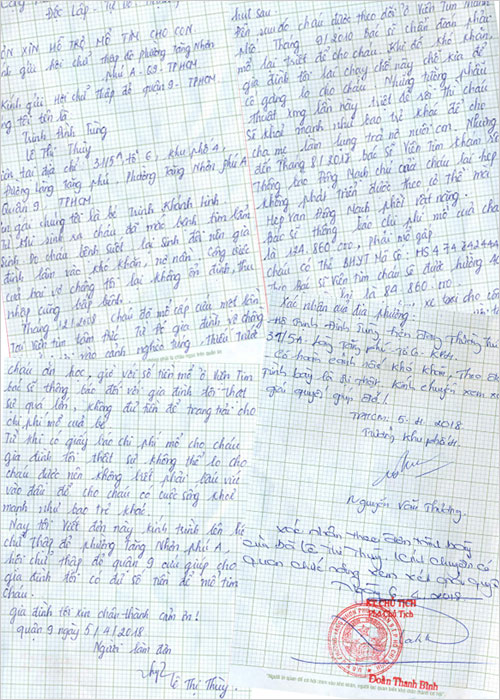 Độc Lập - Tự Do
ĐƠN XIN HỖ TRỢ MỔ TIM CHO CON
gửi hội chữ thập đỏ phường Tăng Nhơn
Phú A - Q9 - TPHCM
Kính gửi Hội chữ thập đỏ quận 9 - TPHCM
tôi tên là
Trịnh Đình Trung
Lê Thị Thủy
tại địa chỉ 31/5A tổ 6, khu phố 4,
Đường Làng Tăng phú, Phường Tăng Nhơn phú A
Quận 9, TPHCM
gái chúng tôi là bé Trịnh Khánh Linh.
Từ khi sinh ra cháu đã mắc bệnh tim bẩm
sinh do cháu bệnh suốt lại sinh đôi nên gia
đình lâm vào khó khăn, nợ nần. Công việc
của hai vợ chồng tôi lại không ổn định, thu
nhập cũng bấp bênh.
Tháng 12/2008 cháu đã mổ cấp cứu một lần
Tại viện tim tâm Đức. Từ đó gia đình vợ chồng
vào cảnh nghèo túng. Thiếu Trước
hụt sau.
Đến sau đó cháu được theo dõi ở Viện Tim Thành
Tháng 9/2010 bác sĩ chẩn đoán phải
mổ lại triệt để cho cháu. Khi đó khó khăn,
gia đình tôi lại chạy chỗ này chỗ kia để
cố gắng lo cho cháu. Những tưởng phẫu
thuật xong lần này triệt để rồi thì cháu
sẽ khỏe mạnh như bao trẻ khác để cho
cha mẹ làm lụng trả nợ nuôi con. Nhưng
đến Tháng 8/2017 bác sĩ Viện Tim khám và
Thông báo Động Mạch chủ của cháu lại hẹp
không phát triển được theo cơ thể mà
Hẹp Van Động Mạch phổi rất nặng.
bác sĩ thông báo chi phí mổ của cháu
là 124.860.000, phải mổ gấp.
cháu có thẻ BHYT Mã số: HS 4 74 74 2444
Theo Bác sĩ Viện Tim cháu sẽ được hưởng 40
là 84.860.000
Xác nhận địa phương. xe taxi cho cô
Hộ Trịnh Đình Trung hiện đang thường trú
31/5A Làng Tăng phú, tổ 6, KP4.
Có hoàn cảnh rất khó khăn. Theo đơn
trình bày là sự thật. Kính chuyển xem xét
giải quyết giúp đỡ!
TPHCM: 5.4.2018
Trưởng khu phố 4.
Nguyễn Văn Thương.
cháu ăn học, giờ với số tiền mổ ở Viện Tim
bác sĩ thông báo đối với gia đình tôi thật
sự quá lớn, không đủ tiền để trang trải cho
chi phí mổ của bé
Từ khi có giấy báo chi phí mổ cho cháu
gia đình tôi thật sự không thể lo cho
cháu được nên không biết phải bấu víu
vào đâu để cho cháu có cuộc sống khỏe
mạnh như bao trẻ khác.
Nay tôi viết đơn này kính trình lên hội
chữ thập đỏ phường Tăng Nhơn phú A,
hội chữ thập đỏ quận 9 cứu giúp cho
gia đình tôi có đủ số tiền để mổ tim
cháu.
gia đình tôi xin chân thành cảm ơn!
quận 9 ngày 5/4/2018
Người làm đơn
Lê Thị Thủy.
Xác nhận theo đơn trình bày
của bà Lê Thị Thủy. Kính chuyển cơ
quan chức năng xem xét giải quyết
6.4.2018
KT.CHỦ TỊCH
PHÓ CHỦ TỊCH
Đoàn Thanh Bình